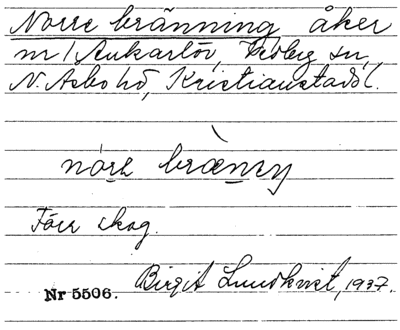 Norre bränning åker
nr 1 Aukarlöv, Vedby sn,
N. Åsbo hd, Kristianstads l.
nòrə bræneŋ
Förr skog.
Nr 5506. Birgit Lundkvist, 1937.